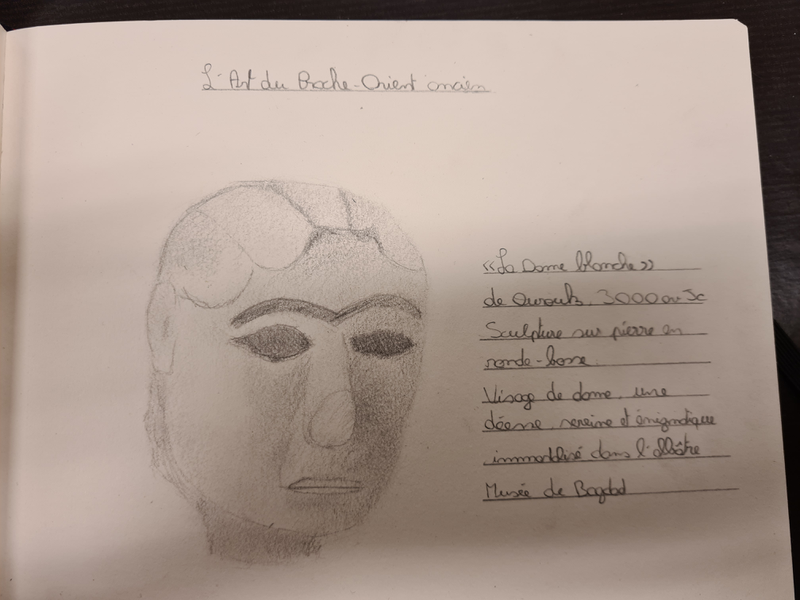 L'Art du Proche-Orient ancien
«La Dame blanche»
de Ourouk, 3000 av Jc
Sculpture sur pierre en
ronde-bosse
Visage de dame, une
déesse, sereine et énigmatique
immobilisé dans l'albâtre
Musée de Bagdad